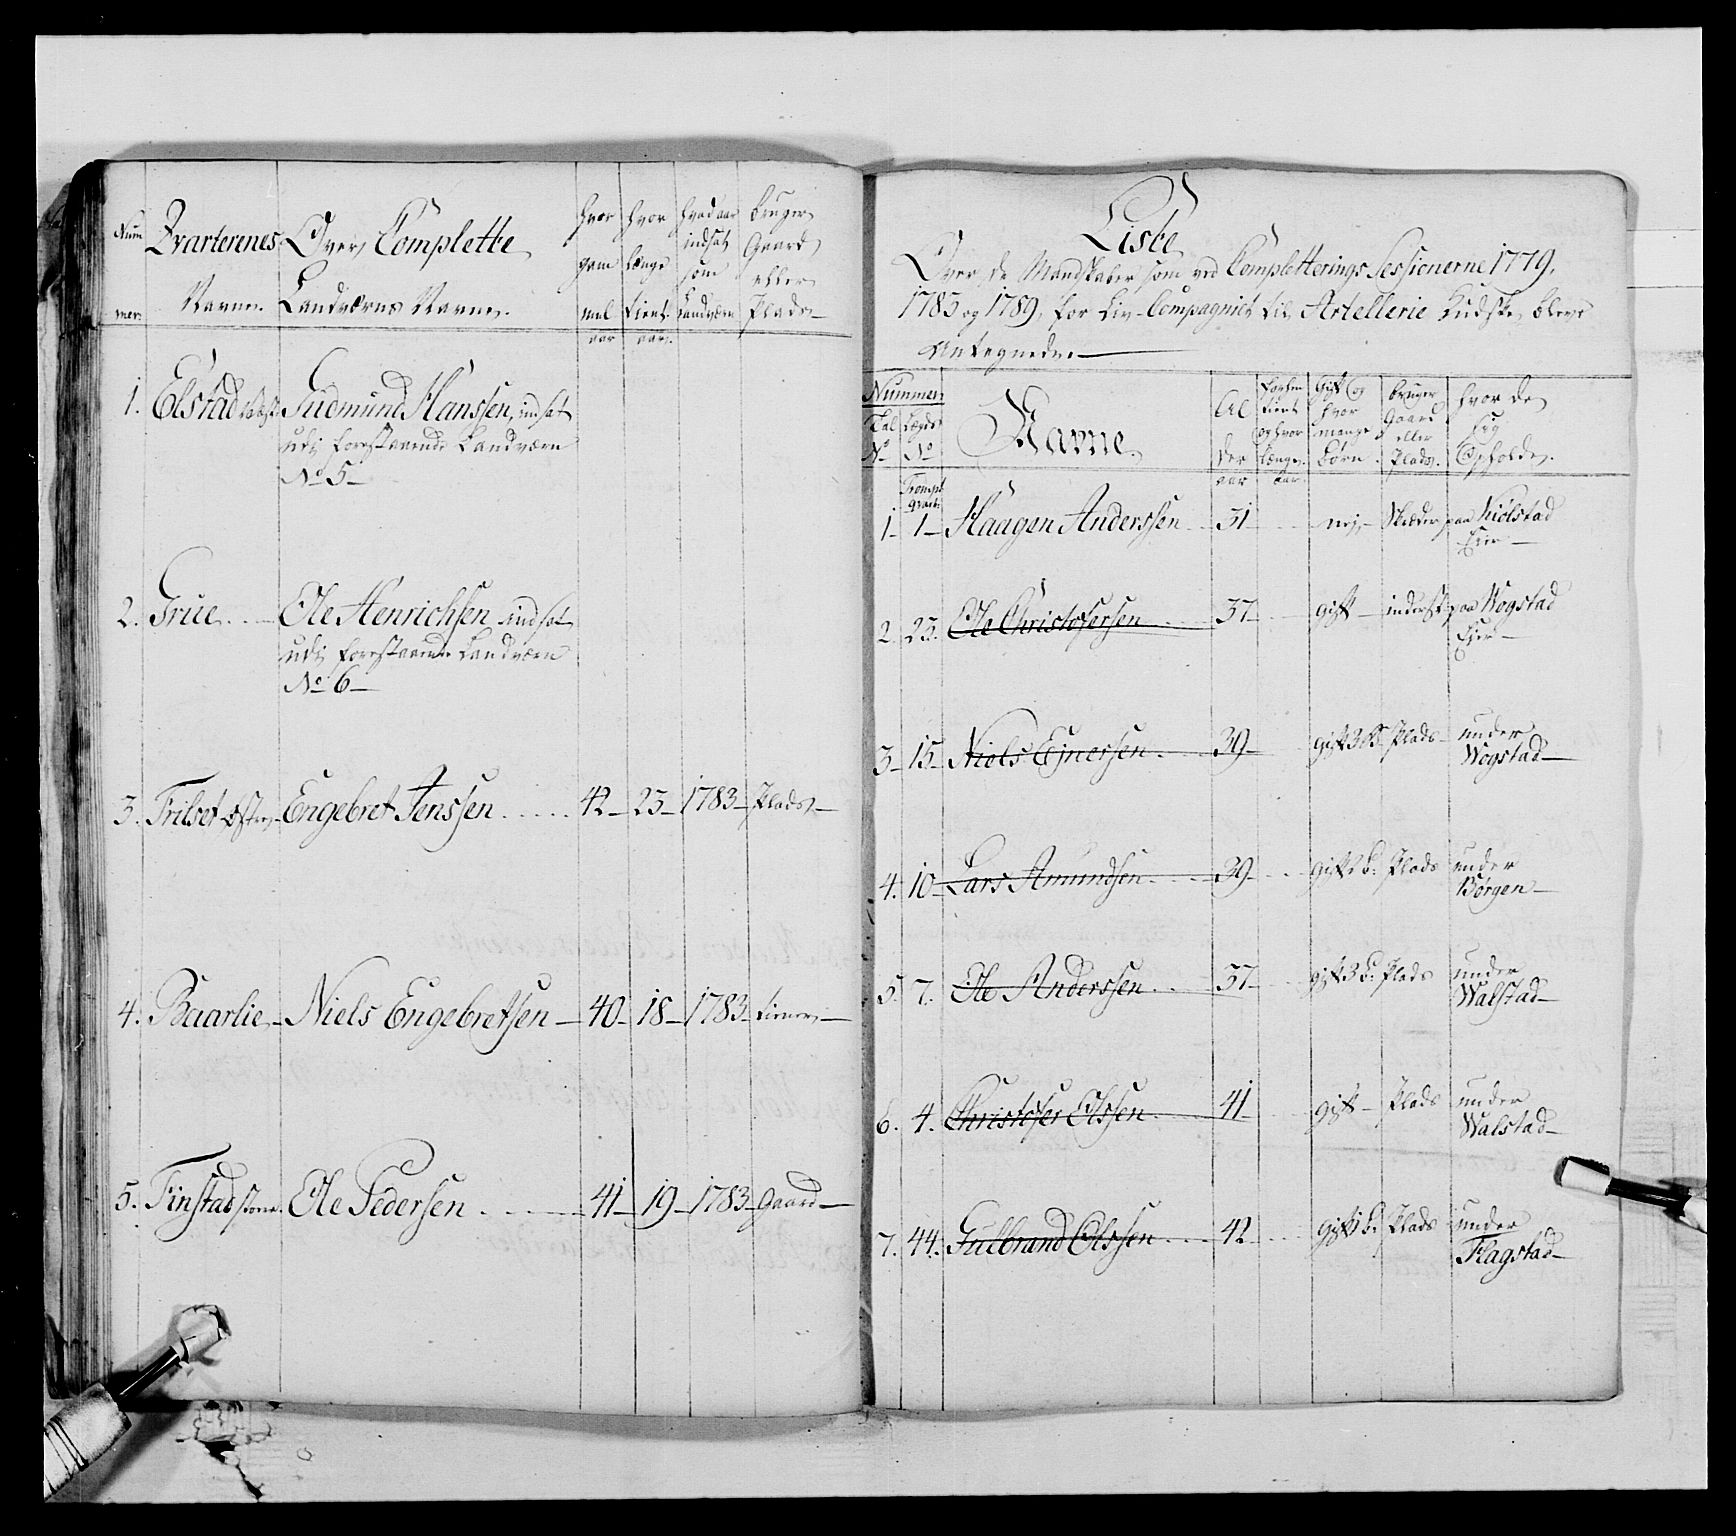 Num
mer.
Qvarterenes
Navne.
Over Complette
Landværns Navne.
hvor
gam
mel
aar
hvor
længe
tient
aar.
hvad aar
indsat
som
Landværn
bruger
Gaard
eller
Plads
1. Elstad Gudmund Hanssen, indsat
udj forestaaende Landværn
No 5
2. Grue Ole Henrichsen indsat
udj forestaaende Landværn
No 6
3. Trilset østre Engebret Jenssen 42 23 1783 Plads
4. Baarlie Niels Engebretsen 40 18 1783
5. Finstad store Ole Pedersen 41 19 1783 Gaard
Liste
Over de Mandskaber som ved Completterings Sessionerne 1779,
1785 og 1789, for Liv-Compagniet til Artellerie Kudske bleve
Antegnede
Nummer
Tal
No
Lægds
No
Navne
Al
der
aar
tient
og hvor
længe
aar
Gift og
hvor
mange
børn
bruger
Gaard
eller
Plads.
hvor de
sig
Opholde.
1 1 Haagen Anderssen 31 nej paa Kiølstad
Eier
2. 23. Ole Christofersen 37 gift inderst paa Wogstad
Eier
3 15 Niels Ejnersen 39 gift 3 B Plads under
Wogstad
4. 10 Lars Amundsen 39 gift b. Plads under
Børgen
5. 7. Ole Anderssen 37 gift 3 b. Plads under
Walstad
6. 4. Christofer Olssen 41 gift Plads under
Walstad
7. 44. Gulbrand Olssen 42 gift 1 b. Plads under
Flagstad